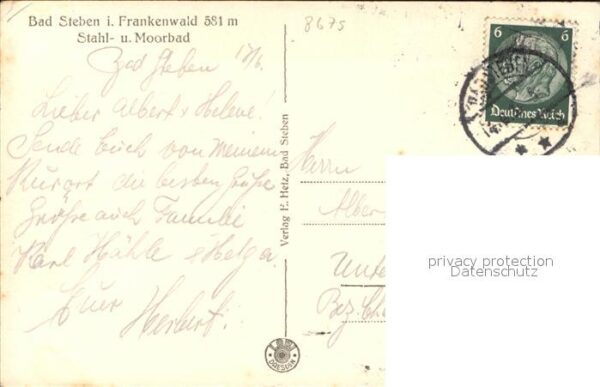 Bad Steben i. Frankenwald 581 m
Stahl- u. Moorbad
8675
Bad Steben 17/6.
Lieber Albert & Helene!
Sende Euch von meinem
Kurort die besten Grüße
Grüße auch Familie
Karl Hühle & Helga.
Euer
Herbert.
Verlag E. Hetz, Bad Steben
6 6
Deutsches Reich
Herrn
Alber
Unte
Bez. Ch
privacy protection
Datenschutz
DRESDEN